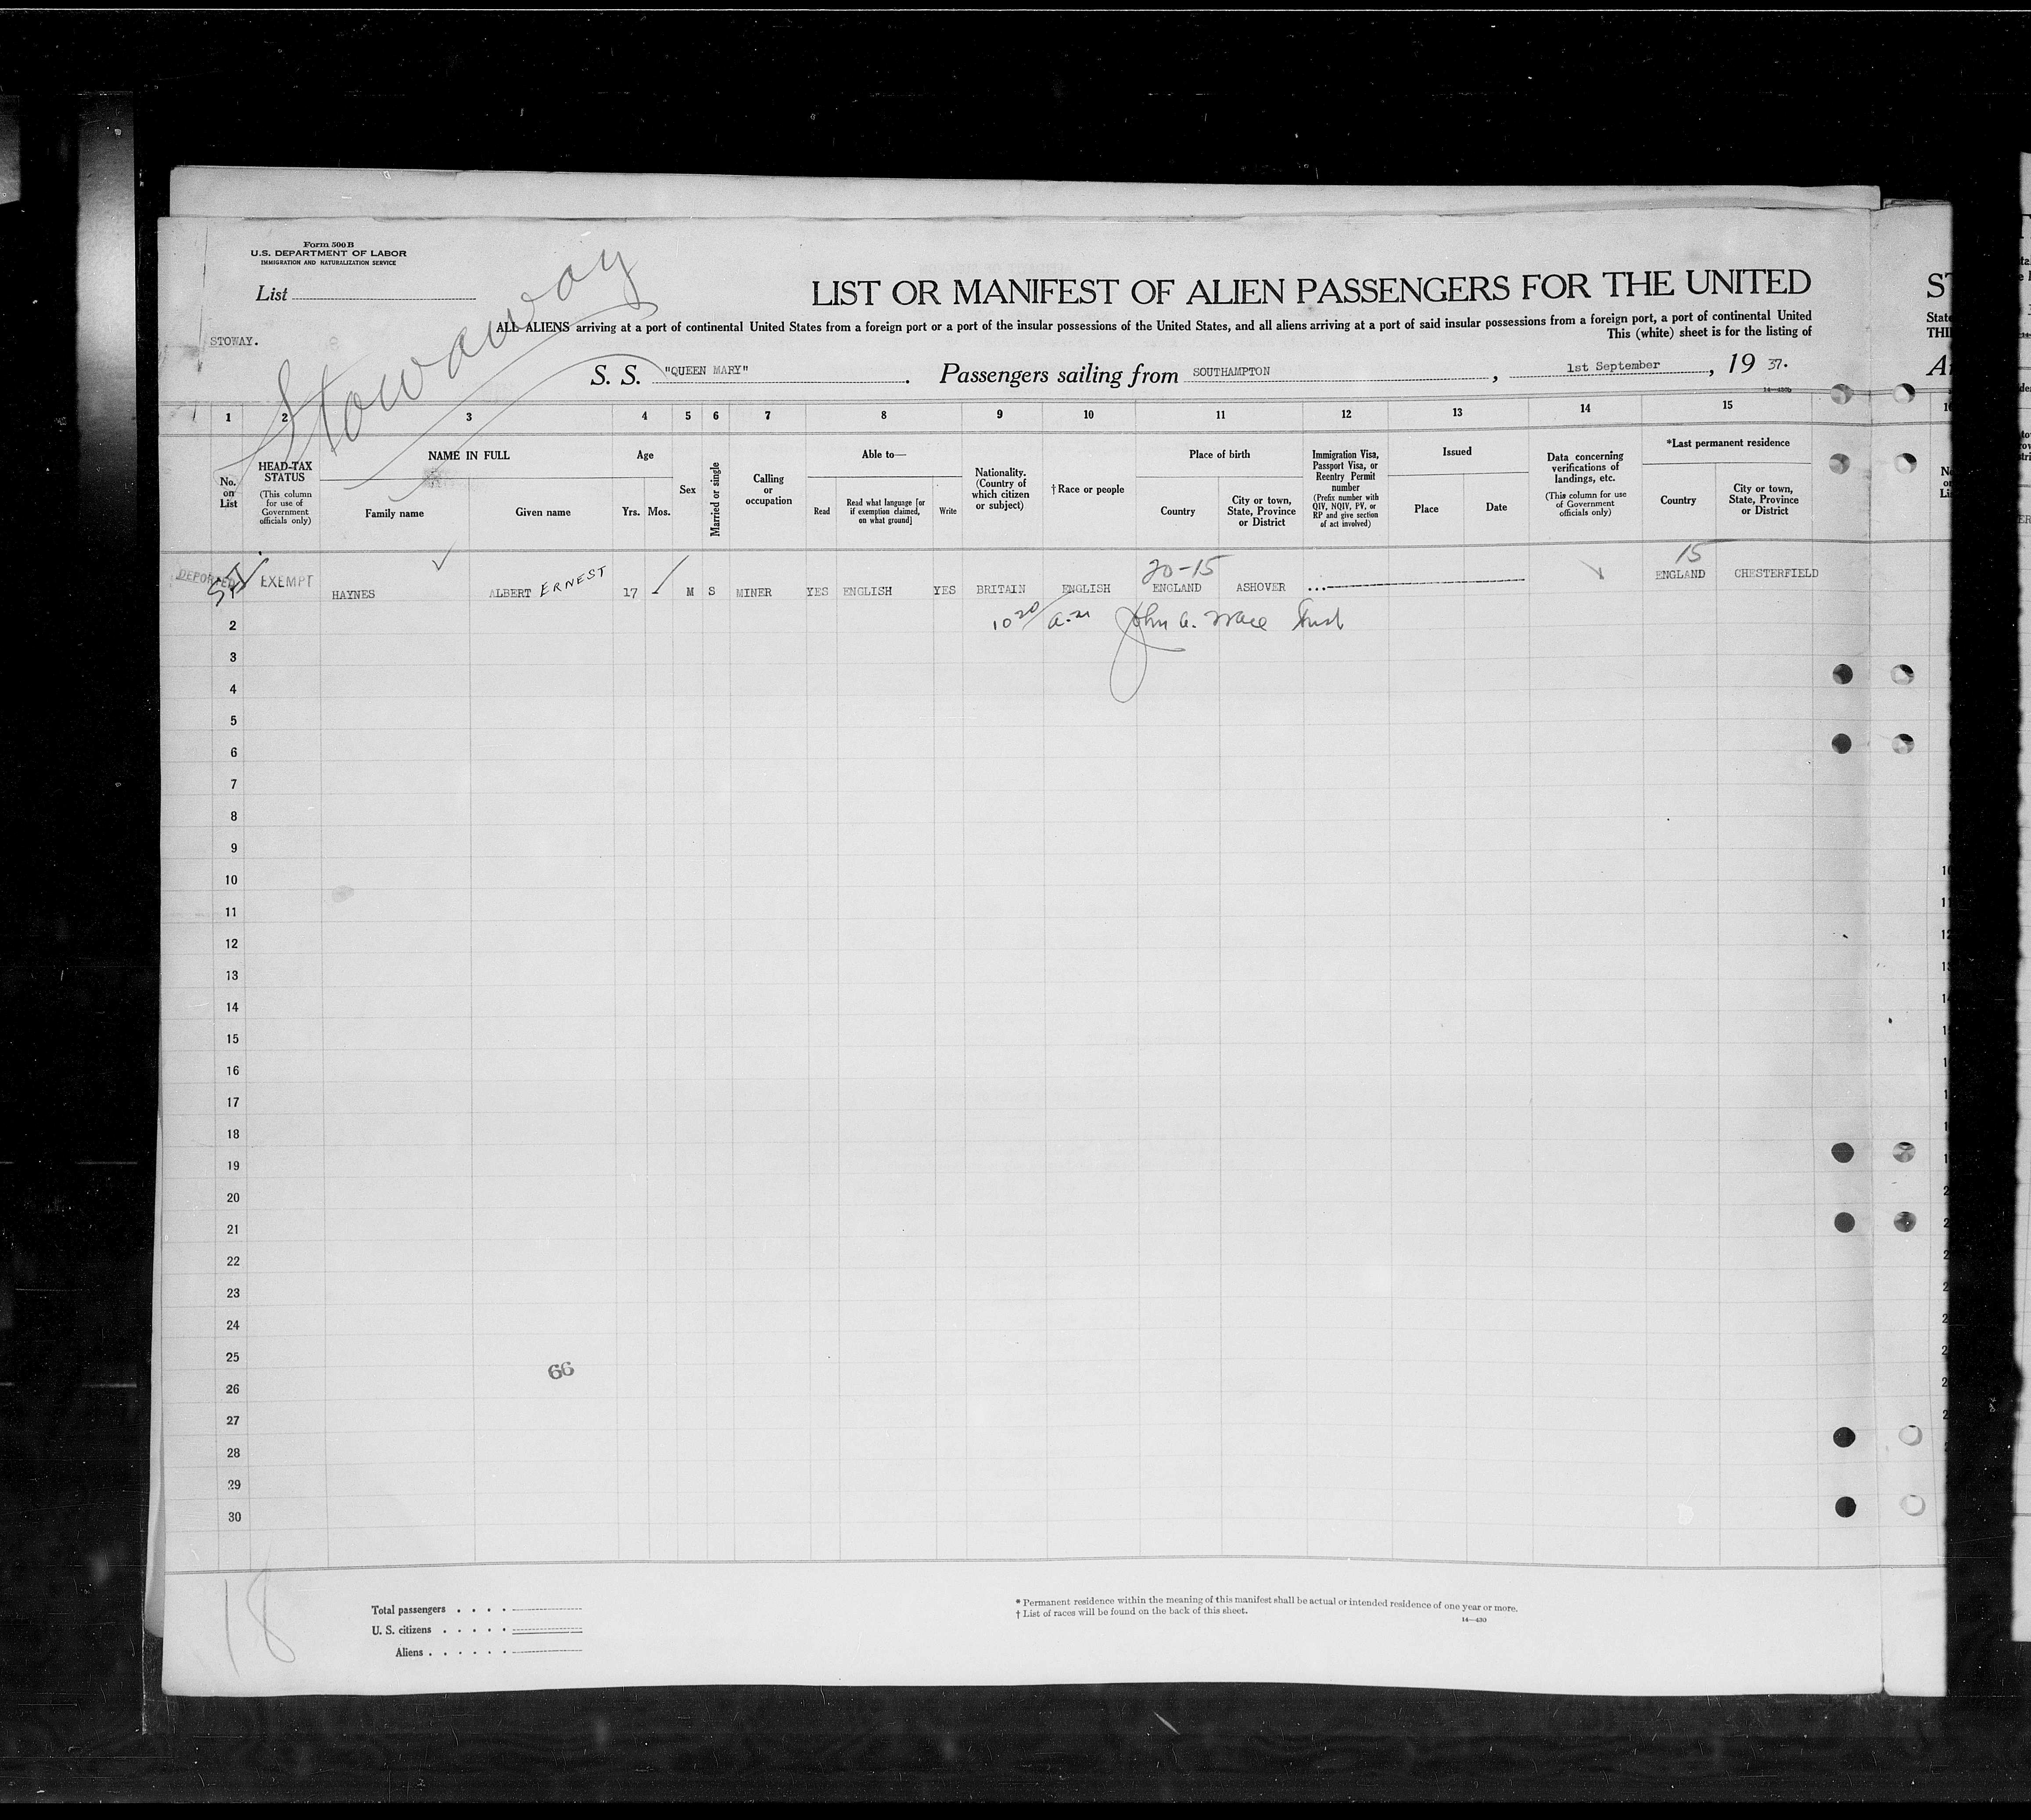 Form 500 B
U.S. DEPARTMENT OF LABOR
IMMIGRATION AND NATURALIZATION SERVICE
List
Stowaway
LIST OR MANIFEST OF ALIEN PASSENGERS FOR THE UNITED
ST
ALL ALIENS arriving at a port of continental United States from a foreign port or a port of the insular possessions of the United States, and all aliens arriving at a port of said insular possessions from a foreign port, a port of continental United
State
This (white) sheet is for the listing of
THI
STOWAY.
S. S. "QUEEN MARY". Passengers sailing from SOUTHAMPTON, 1st September, 19 37.
14—430b
1 2 3 4 5 6 7 8 9 10 11 12 13 14 15
No. on List
HEAD-TAX STATUS
(This column for use of Government officials only)
NAME IN FULL
Family name
Given name
Age
Yrs. Mos.
Sex
Married or single
Calling or occupation
Able to—
Read
Read what language [or if exemption claimed, on what ground]
Write
Nationality. (Country of which citizen or subject)
†Race or people
Place of birth
Country
City or town, State, Province or District
Immigration Visa, Passport Visa, or Reentry Permit number
(Prefix number with QIV, NQIV, PV, or RP and give section of act involved)
Issued
Place
Date
Data concerning verifications of landings, etc.
(This column for use of Government officials only)
*Last permanent residence
Country
City or town, State, Province or District
20-15
15
DEPORTED EXEMPT HAYNES ALBERT ERNEST 17 M S MINER YES ENGLISH YES BRITAIN ENGLISH ENGLAND ASHOVER ENGLAND CHESTERFIELD
10 20 a.m John a.
2
3
4
5
6
7
8
9
10
11
12
13
14
15
16
17
18
19
20
21
22
23
24
25
66
26
27
28
29
30
18
Total passengers
U. S. citizens
Aliens
* Permanent residence within the meaning of this manifest shall be actual or intended residence of one year or more.
† List of races will be found on the back of this sheet.
14—430